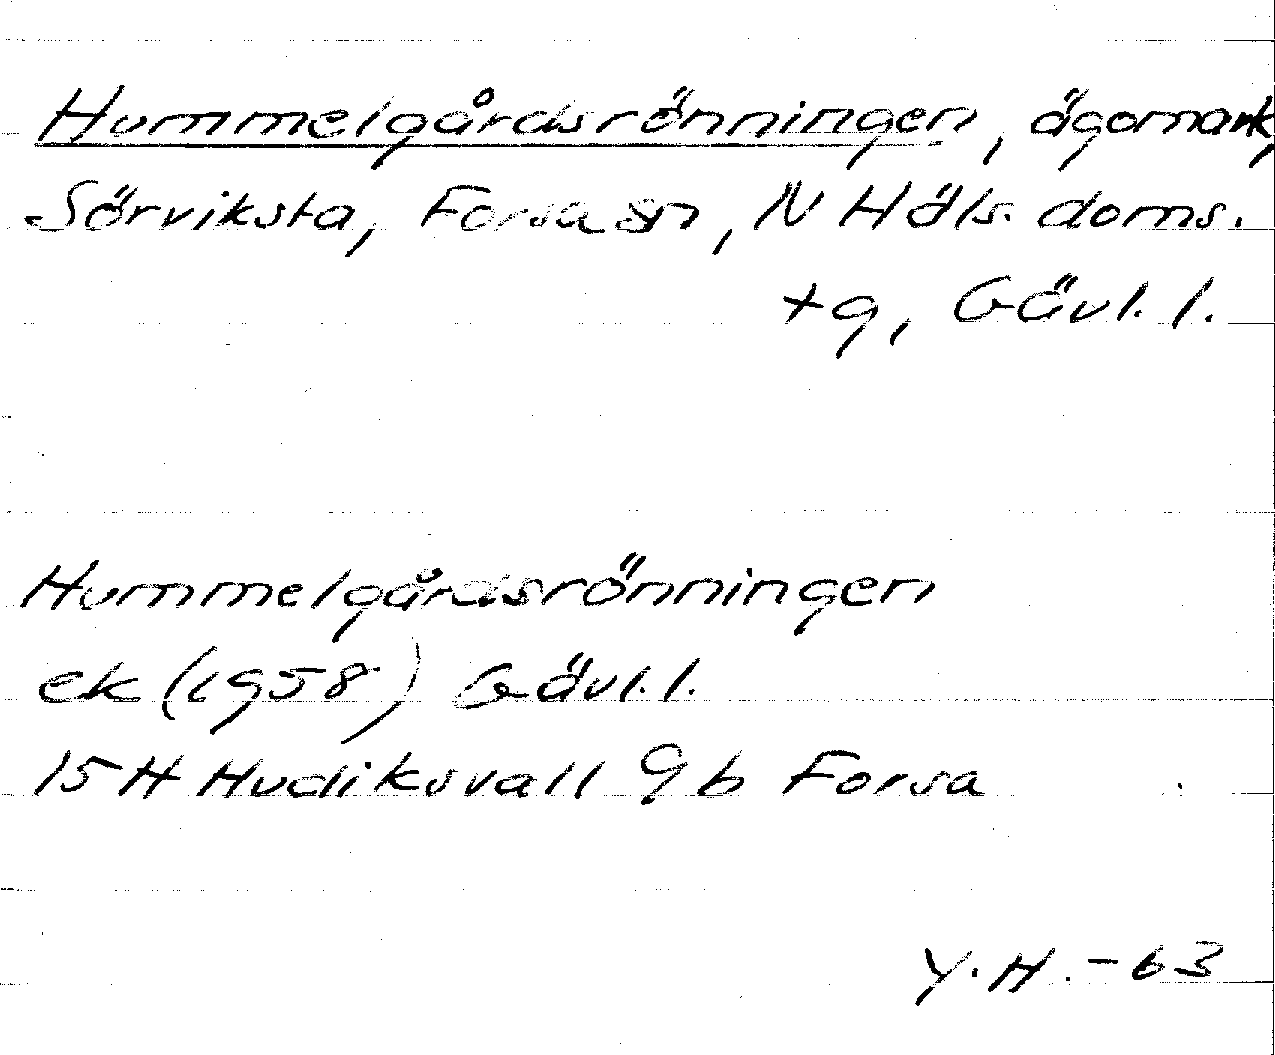 Hummelgårdsrönningen, ägomark,
Sörviksta, Forsa sn, N Häls. doms.
tg, Gävl. l.
Hummelgårdsrönningen
ek (1958) Gävl. l.
15H Hudiksvall 9b Forsa
Y.H. -63